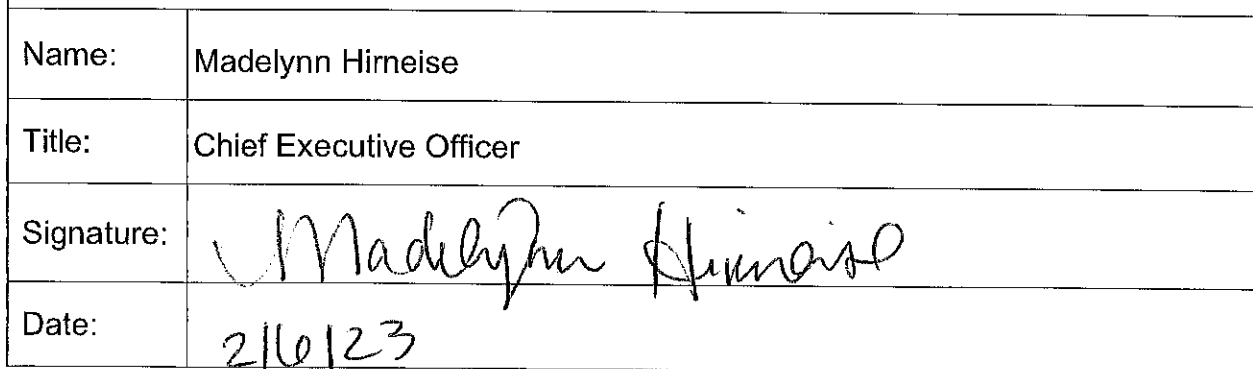 Name: Madelynn Hirneise
Title: Chief Executive Officer
Signature: Madelynn Hirneise
Date: 2/6/23